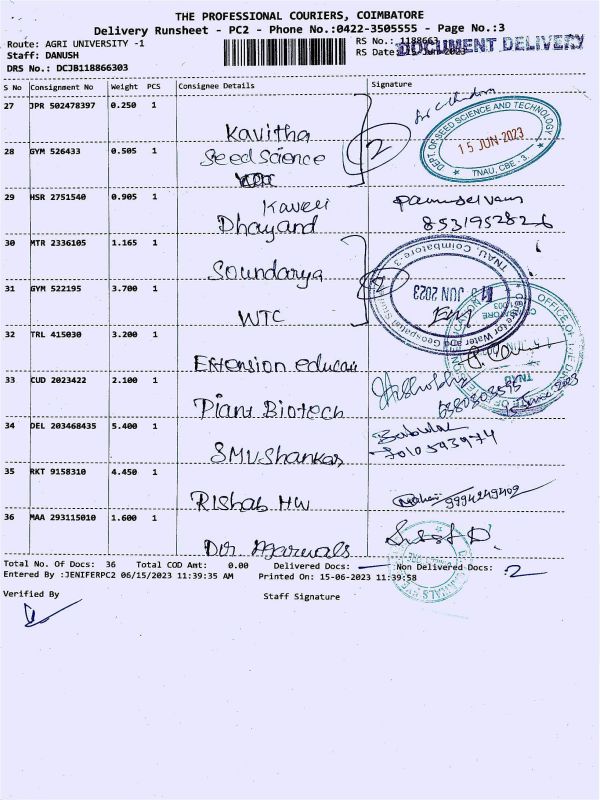 THE PROFESSIONAL COURIERS, COIMBATORE
Delivery Runsheet - PC2 - Phone No.:0422-3505555 - Page No.:3
Route: AGRI UNIVERSITY -1
RS No.: 1188663
DOCUMENT DELIVERY
Staff: DANUSH
RS Date: 15-Jun-2023
DRS No.: DCJB118866303
S No Consignment No Weight PCS Consignee Details Signature
27 JPR 502478397 0.250 1
Kavitha
DEPT. OF SEED SCIENCE AND TECHNOLOGY
15 JUN 2023
TNAU, CBE - 3.
28 GYM 526433 0.505 1
Seed Science
2
29 HSR 2751540 0.905 1
Kaveri
Dhayand
8531952826
30 MTR 2336105 1.165 1
Soundarya
TNAU, Coimbatore-3
JUN 2023
Centre for Water and Geospatial
31 GYM 522195 3.700 1
WTC
OFFICE OF THE
TNAU
32 TRL 415030 3.200 1
Extension educati
33 CUD 2023422 2.100 1
Plant Biotech
34 DEL 203468435 5.400 1
SMV Shankar
35 RKT 9158310 4.450 1
Rishab HW
9994249402
36 MAA 293115010 1.600 1
Dr Agarwals
Total No. Of Docs: 36 Total COD Amt: 0.00 Delivered Docs: Non Delivered Docs: 2
Entered By :JENIFERPC2 06/15/2023 11:39:35 AM Printed On: 15-06-2023 11:39:58
Verified By
Staff Signature